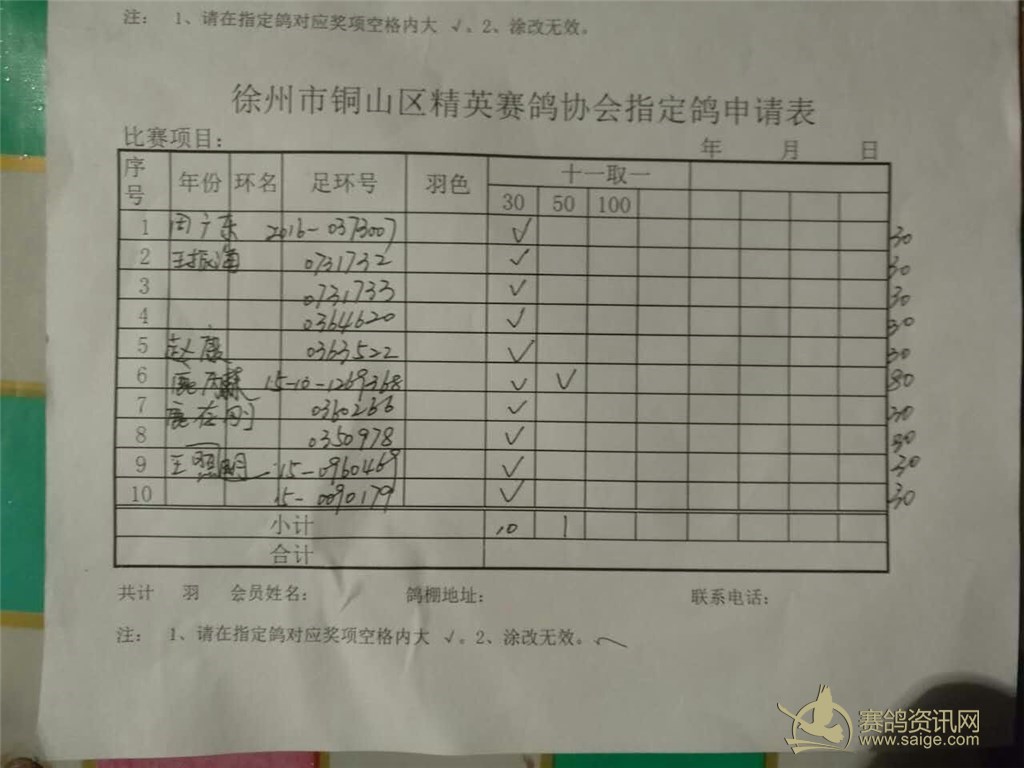 注: 1、请在指定鸽对应奖项空格内大 √。2、涂改无效。
徐州市铜山区精英赛鸽协会指定鸽申请表
比赛项目: 年 月 日
序号 年份 环名 足环号 羽色 十一取一
30 50 100
1 田广东 2016-0373007 √ 30
2 王振海 0731732 √ 30
3 0731733 √ 30
4 0364620 √ 30
5 赵康 0363522 √ 30
6 15-10-1269368 √ √ 80
7 鹿在刚 0360266 √ 30
8 0350978 √ 30
9 王照明 15-0960469 √ 30
10 15-0090179 √ 30
小计 10 1
合计
共计 羽 会员姓名: 鸽棚地址: 联系电话:
注: 1、请在指定鸽对应奖项空格内大 √。2、涂改无效。
赛鸽资讯网
www.saige.com